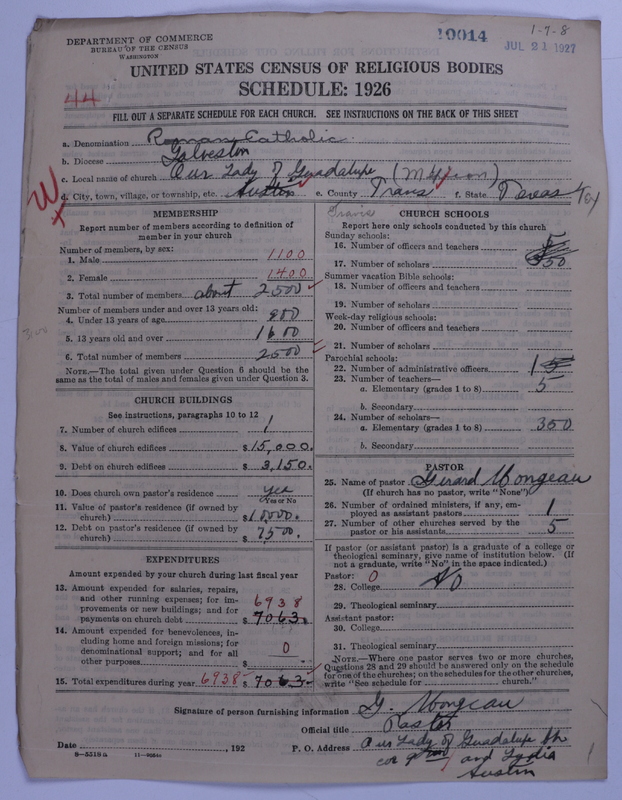 1-7-8
10014
JUL 21 1927
DEPARTMENT OF COMMERCE
BUREAU OF THE CENSUS
WASHINGTON
UNITED STATES CENSUS OF RELIGIOUS BODIES
SCHEDULE: 1926
44
FILL OUT A SEPARATE SCHEDULE FOR EACH CHURCH. SEE INSTRUCTIONS ON THE BACK OF THIS SHEET
a. Denomination Roman Catholic
b. Diocese Galveston
c. Local name of church Our Lady of Guadalupe (Mission)
d. City, town, village, or township, etc. Austin e. County Travis f. State Texas
Travis
MEMBERSHIP
Report number of members according to definition of
member in your church
Number of members, by sex:
1. Male 1100
2. Female 1400
3. Total number of members about 2500
Number of members under and over 13 years old:
4. Under 13 years of age 900
5. 13 years old and over 1600
6. Total number of members 2500
NOTE.—The total given under Question 6 should be the
same as the total of males and females given under Question 3.
CHURCH BUILDINGS
See instructions, paragraphs 10 to 12
7. Number of church edifices 1
8. Value of church edifices $15,000.
9. Debt on church edifices $3,150.
10. Does church own pastor's residence yes
(Yes or No
11. Value of pastor's residence (if owned by
church) $10000.
12. Debt on pastor's residence (if owned by
church) $7500.
EXPENDITURES
Amount expended by your church during last fiscal year
13. Amount expended for salaries, repairs,
and other running expenses; for im-
provements or new buildings; and for
payments on church debt 6938 $7063.
14. Amount expended for benevolences, in-
cluding home and foreign missions; for
denominational support; and for all
other purposes 0 $
15. Total expenditures during year 6938 $7063.
CHURCH SCHOOLS
Report here only schools conducted by this church
Sunday schools:
16. Number of officers and teachers 5
17. Number of scholars 350
Summer vacation Bible schools:
18. Number of officers and teachers
19. Number of scholars
Week-day religious schools:
20. Number of officers and teachers
21. Number of scholars
Parochial schools:
22. Number of administrative officers 1
23. Number of teachers—
a. Elementary (grades 1 to 8) 5
b. Secondary
24. Number of scholars—
a. Elementary (grades 1 to 8) 350
b. Secondary
PASTOR
25. Name of pastor Gerard Mongeau
(If church has no pastor, write "None")
26. Number of ordained ministers, if any, em-
ployed as assistant pastors 1
27. Number of other churches served by the
pastor or his assistants 5
If pastor (or assistant pastor) is a graduate of a college or
theological seminary, give name of institution below. (If
not a graduate, write "No" in the space indicated.)
Pastor: 0
28. College No
29. Theological seminary
Assistant pastor:
30. College
31. Theological seminary
NOTE.—Where one pastor serves two or more churches,
Questions 28 and 29 should be answered only on the schedule
for one of the churches; on the schedules for the other churches,
write "See schedule for church."
Signature of person furnishing information G. Mongeau
Official title Pastor
Date , 192 P. O. Address Our Lady of Guadalupe Ch
cor 9 and Lydia
Austin
8-5518a